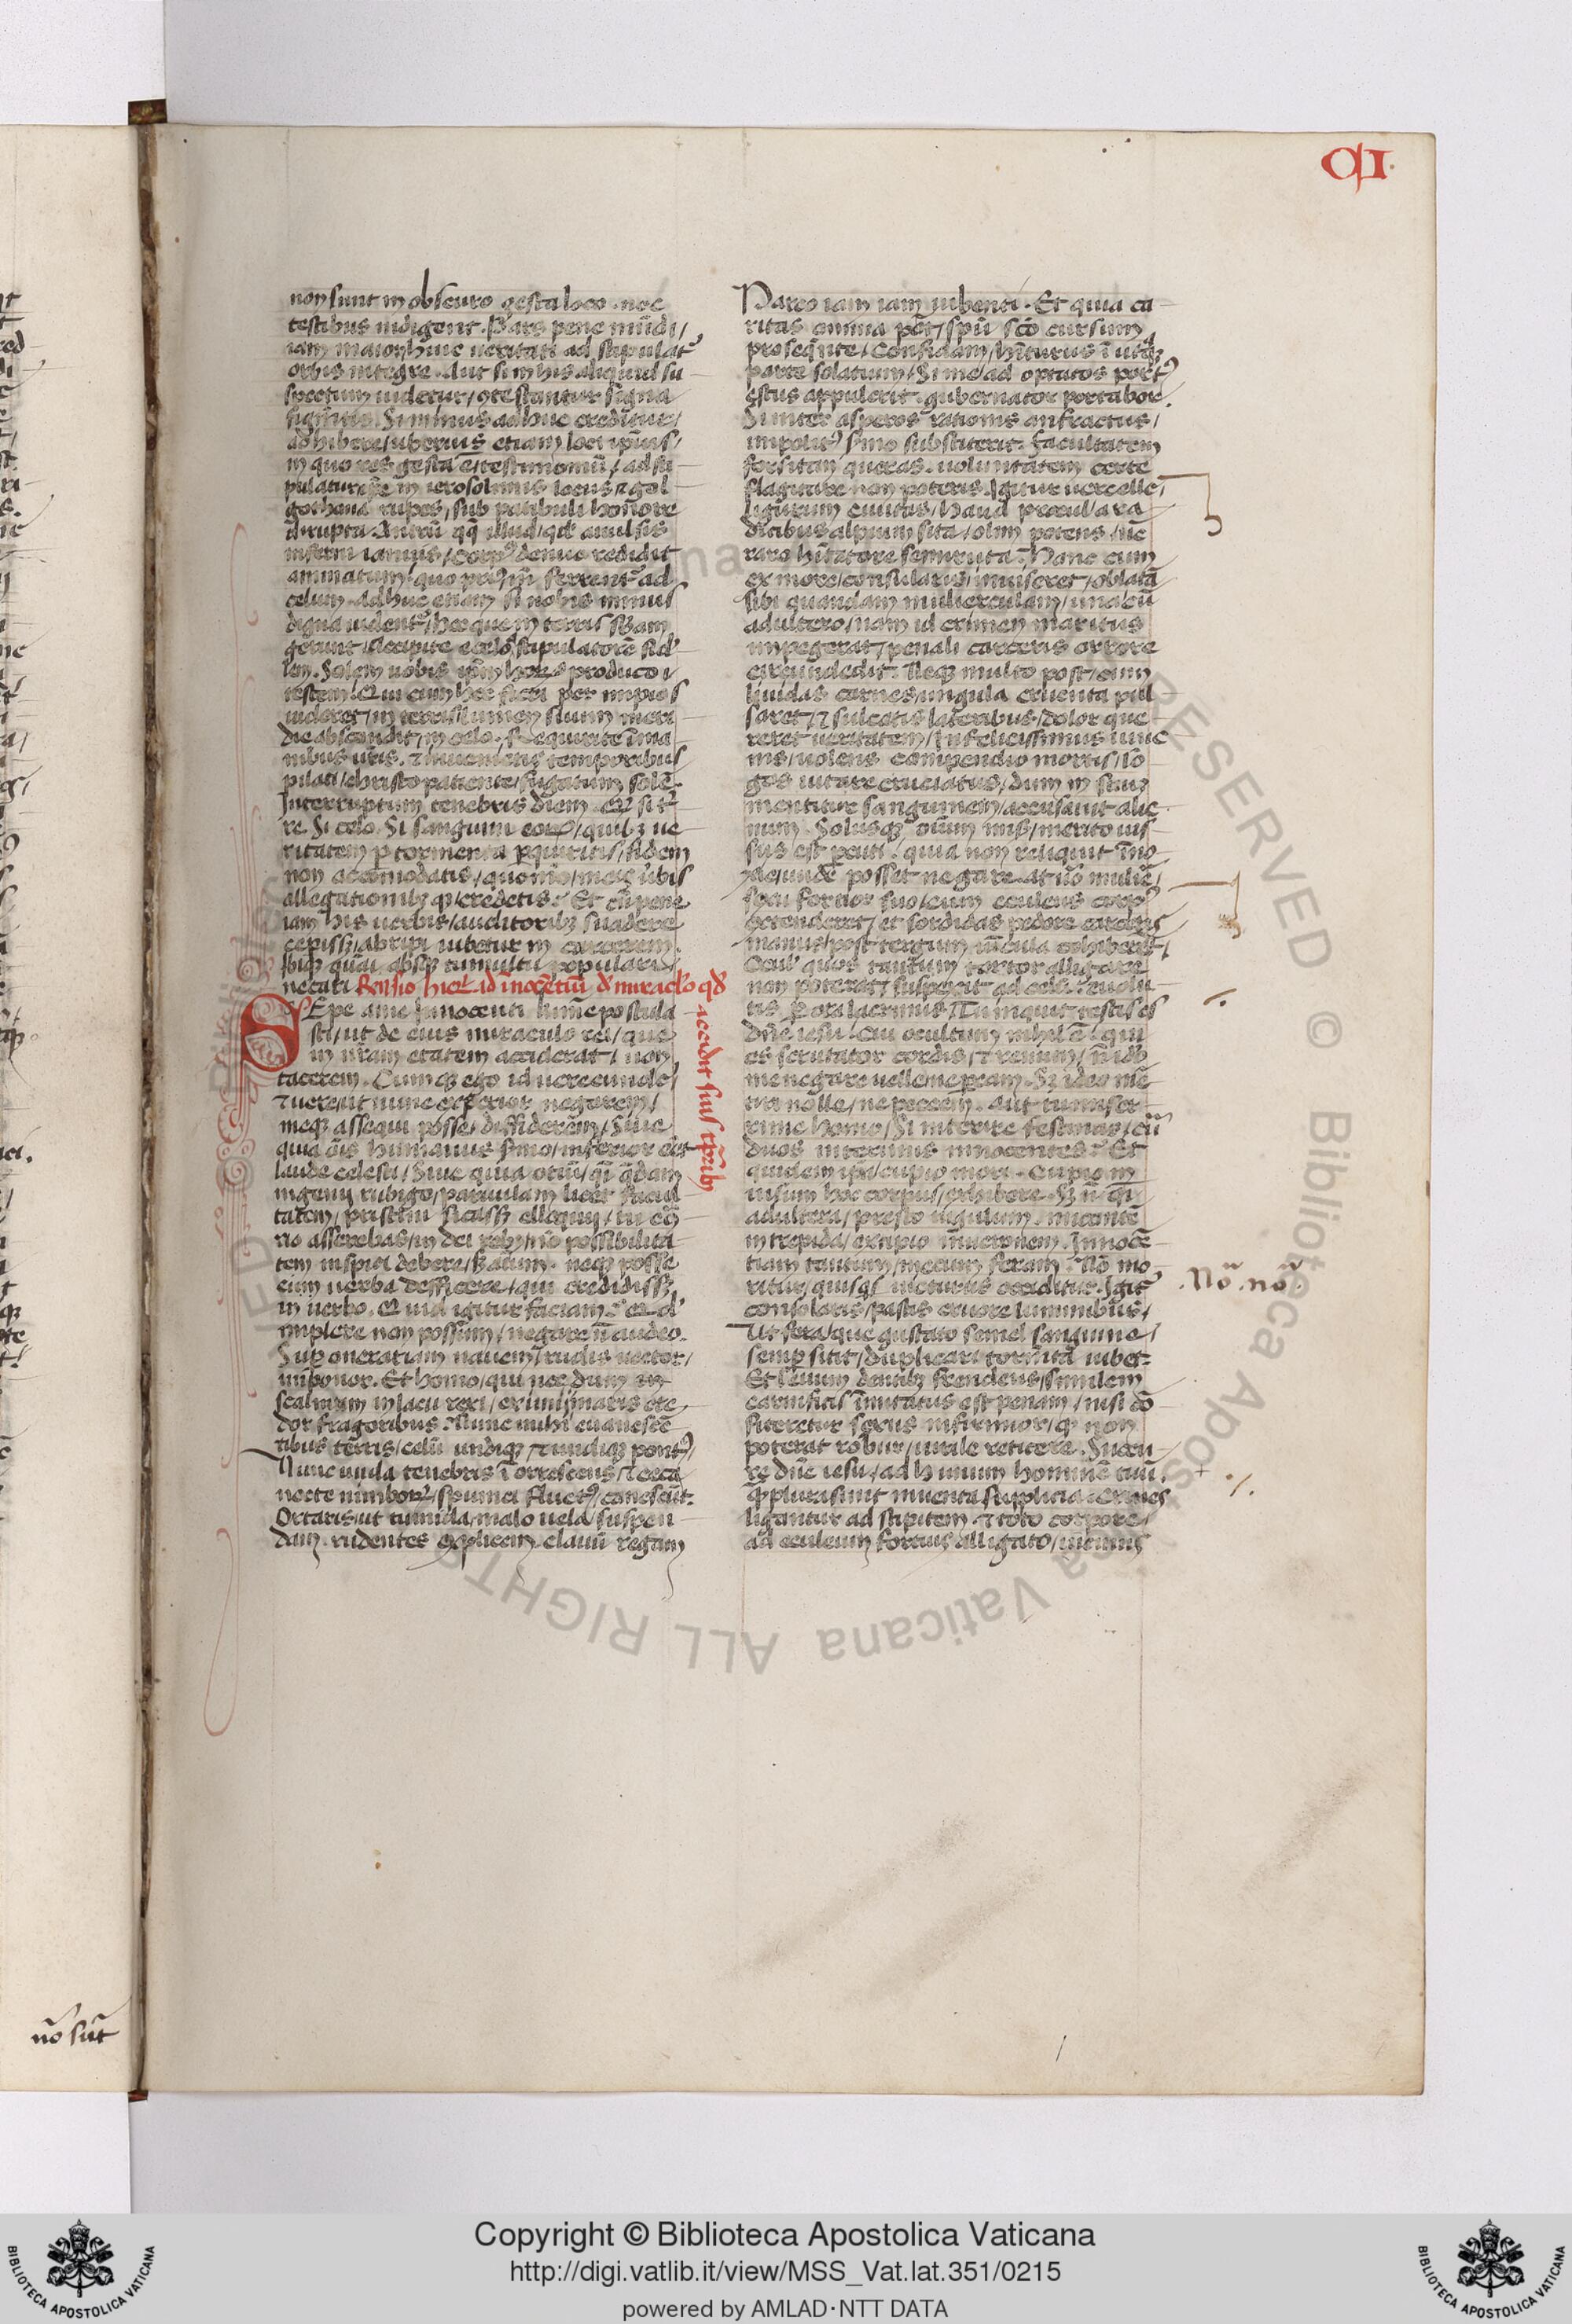 CI.
non sunt in obscuro gesta loco . nec
testibus indigent . Pars pene mūdi /
iam maior huic ueritati ad stipulat᷒
orbis integre . Aut si in his aliquid su
spectum uidetur / ꝯtestantur signa
Si minus adhuc creditur /
adhibere / uberius etiam loci ipīus /
in quo res gesta ē / testimoniū / ad sti
pulatur in ierosolimis locus ⁊ gol
gothana rupes / sub patibuli honore
dirupta . Antrū qq̄ illud / qd' auulsis
inferni ianuis / corp᷒ denuo redidit
animatum / quo ferrent᷒ ad
celum . adhuc etiam si nobis minus
digna uident᷒ / hec que in terris
gerunt / Accipite e celo stipulatorē fid'
lem . Solem uobis ip̄m produco ī
testem / Qui cum hec fieri per impios
uideret / in terris / lumen suum meri
die abscondit / in celo . Requirite ī ma
nibus ur̄is . ⁊ inuenietis temporibus
pilati / christo patiente / fugatum solē .
Interruptum tenebris diem .
re Si celo . Si sanguini eoꝝ / quibꝫ ue
ritatem ꝑ tormenta ꝑquiritis / fidem
non accomodatis / quomō / meis u'bis
allegationibꝫ qꝫ / credetis . Et cū pene
iam his uerbis / auditoribꝫ suadere
cepissꝫ / abripi iubetur in carcerem .
Ibiqꝫ absqꝫ tumultu populari /
necari Hier̄ id inocētiū d' miraclo qd'
accidit suis tp̄ribꝫ
SEpe a me Innocenti kīme postula
sti / ut de eius miraculo rei / que
in nr̄am etatem acciderat / non
tacerem . Cumqꝫ ego id uerecunde /
⁊ uere / ut nunc experior negarem /
meqꝫ assequi posse / diffiderem / Siue
quia ōis humanus s'mo / inferior eēt
laude celesti / Siue quia otiū / q̄si q̄dam
ingenij rubigo / paruulam licet facul
tatem / pristini siccassꝫ elloquij / tu
rio asserebas / in dei rebꝫ / nō possibilita
tem inspici debere / sꝫ aīum . neqꝫ posse
eum uerba defficere / qui credidissꝫ
in uerbo . Quid igitur faciam . Qd'
implere non possum / negare n̄ audeo .
Sup onerariam nauem / rudis uector /
imponor . Et homo / qui nec dum
scalmum in lacu rexi / euxini maris cre
dor fragoribus . Nunc mihi euanescē
tibus terris / celū undiqꝫ ⁊ undiqꝫ pont᷒ /
Nunc unda tenebris ī orrescens / ⁊ ceca
nocte nimboꝝ / spumei fluct᷒ / canescūt .
Ortaris ut tumida / malo uela / suspen
dam . rudentes explicem clauū regam
Pareo iam iam iubenti . Et quia ca
ritas omnia pōt / sp̄u sc̄o cursum
proseq̄nte / Confidam / h'iturus ī utraqꝫ
parte solatium / Si me ad optatos port᷒
estus appulerit . gubernator portabor .
Si inter asperos rationis anfractus /
impolit᷒ s'mo substiterit . facultatem
forsitan queras . uoluntatem certe
flagitare non poteris . Igitur uercelle /
ligurum ciuitas / haud procul / a ra
dicibus alpium sita / olim potens / nūc
raro h'itatore semiruta . Hanc cum
ex more / consularis / inuiseret / oblatā
sibi quandam mulierculam / una cū
adultero / nam id crimen maritus
impegerat / penali carceris orrore
circundedit . Neqꝫ multo post / cum
liuidas carnes / ungula cruenta pul
saret / ⁊ sulcatis lateribus / dolor que
reret ueritatem / Infelicissimus iuue
nis / uolens compendio mortis / lo
gos uitare cruciatus / dum in suum
mentitur sanguinem / accusauit alie
num . Solusqꝫ oīum mis' / merito uis
sus est percuti . quia non reliquit īno
xie / unde posset negare . at u'o muliē /
sexu fortior suo / cum eculeus corp᷒
extenderet / et sordidas pedore carceris
manus / post tergum / uīcula cohiberēt /
Oculis / quos tantum tortor alligare
non poterat / suspexit ad celū . ⁊ euolu
tis p ora lacrimis / Tu inquit testis es
dn̄e iesu . Cui ocultum nihil ē . qui
es scrutator cordis / ⁊ renium / n̄ id'o
me negare uelle ne peream . Sꝫ ideo mē
tiri nolle / ne peccem . aut tu miser
rime homo / Si interire festinas / cū
duos interimis innocentes . Et
quidem ip̄a / cupio mori . Cupio in
uisum hoc corpus / exhibere . Sꝫ n̄ q̄si
adultera / presto iugulum . micantē
intrepida / excipio mucronem . Innocē
tiam tantum / mecum feram . Nō mo
ritur / quisqꝫ uicturus occiditur . Igit᷒
consolaris / pastis cruore luminibus /
Ut fera / que gustato semel sanguine /
semp sitit / duplicari torm̄ta iubet .
Et seuum dentibꝫ frendens / similem
carnifici īminatus est penam / nisi cō
fiteretur sexus infirmior / qꝫ non
poterat robur / uirile reticere . Succu
re dn̄e iesu / ad h̄ unum hominē tuū .
qꝫ plura sunt inuenta supplicia . Crines
ligantur ad stipitem ⁊ toto corpore /
ad eculeum fortius alligato / uicinus
. Nō . nō .
nō sūt
Copyright © Biblioteca Apostolica Vaticana
http://digi.vatlib.it/view/MSS_Vat.lat.351/0215
powered by AMLAD·NTT DATA
BIBLIOTECA APOSTOLICA VATICANA
BIBLIOTECA APOSTOLICA VATICANA